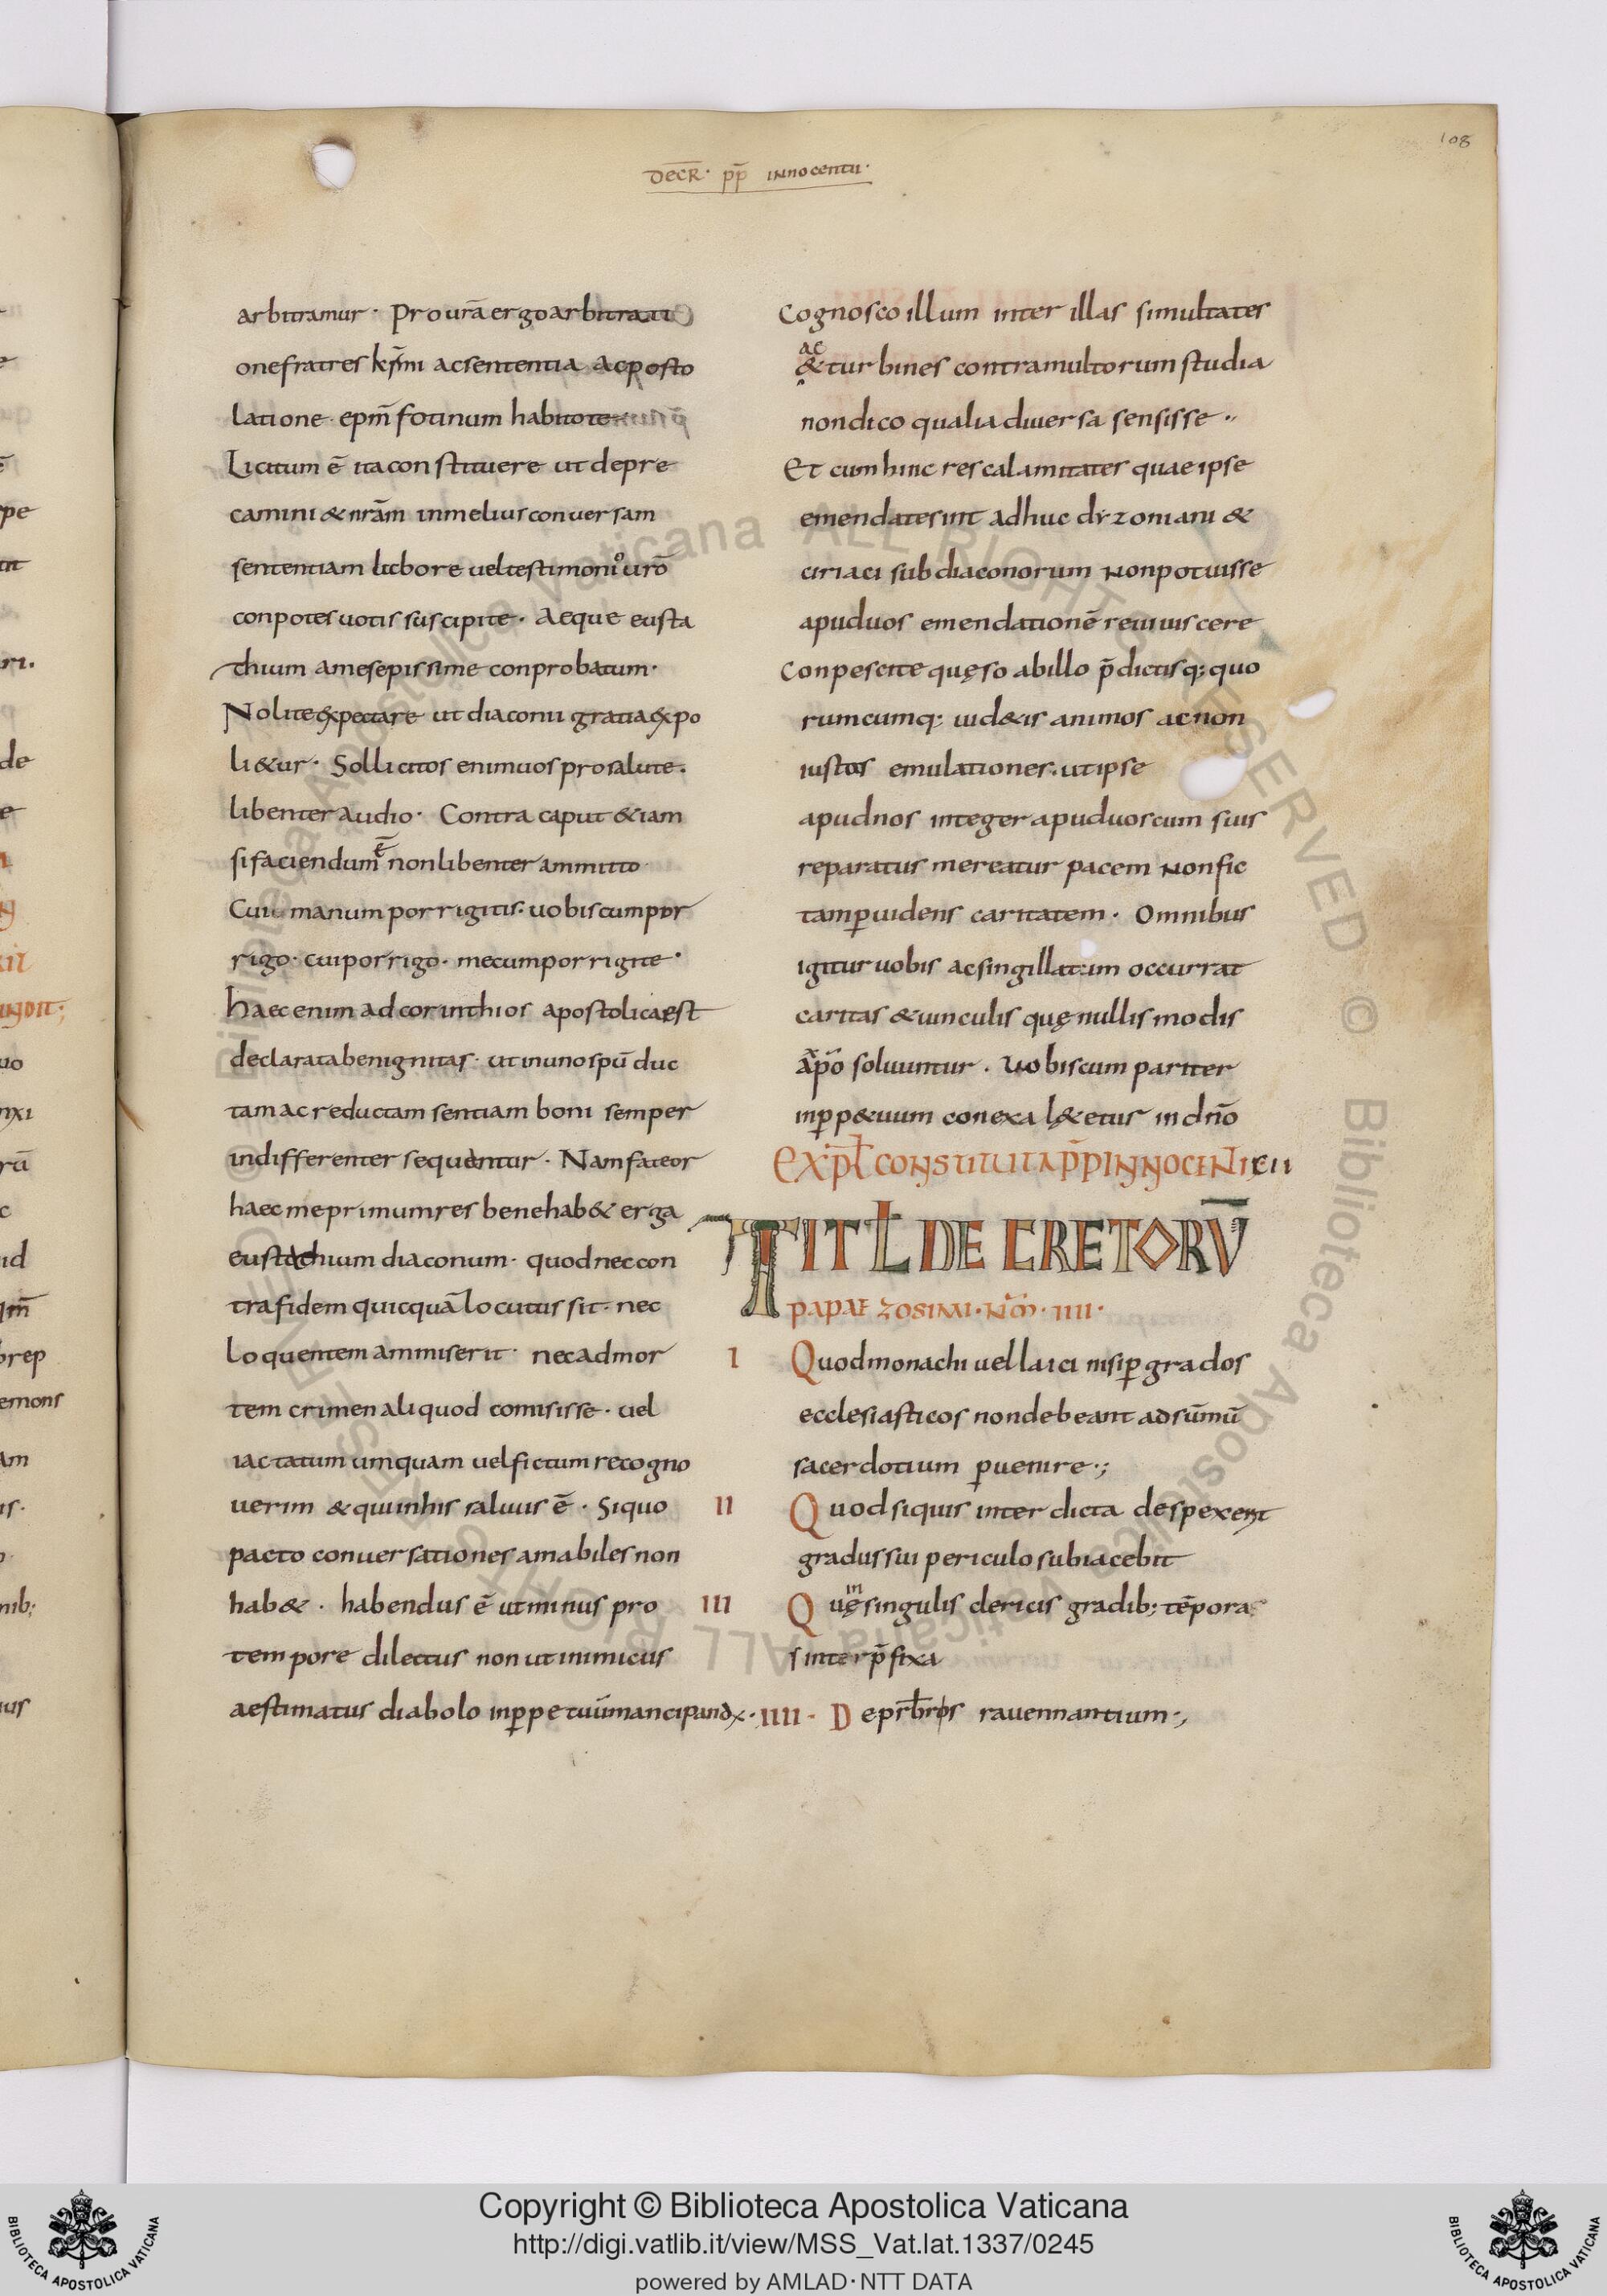 108
DECR̄· pp̄ INNOCENTII·
arbitramur· Pro ūrā ergo arbitrati
one fratres kr̄mi ac sententia ac posto
latione· epm̄ fotinum habitote
Licitum ē ita constituere ut depre
camini & nrām in melius conuersam
sententiam licbore uel testimonio urō
conpotes uotis suscipite· Aeque eusta
thium a me sepissime conprobatum·
Nolite expectare ut diaconii gratia expo
li&ur· Sollicitos enim uos pro salute·
libenter audio· Contra caput &iam
si faciendum ē non libenter ammitto
Cui manum porrigitis· uobiscum por
rigo· cui porrigo· mecum porrigite·
haec enim ad corinthios apostolica est
declarata benignitas· ut in uno spū duc
tam ac reductam sentiam boni semper
indifferenter sequantur· Nam fateor
haec me primum res bene hab& erga
eustachium diaconum· quod nec con
tra fidem quicquā locutus sit· nec
loquentem ammiserit· nec ad mor
tem crimen aliquod comisisse· uel
iactatum umquam uel fictum recogno
uerim & qui in his saluus ē· Si quo
pacto conuersationes amabiles non
hab&· habendus ē ut minus pro
tempore dilectus non ut inimicus
aestimatus diabolo in ꝑpetuūmancipand
Cognosco illum inter illas simultates
ac
& turbines contra multorum studia
non dico qualia diuersa sensisse··
Et cum hinc res calamitates quae ipse
emendate sint adhuc dr̄ zoniani &
ciriaci subdiaconorum Non potuisse
apud uos emendationē reuiuiscere
Conpescite quęso ab illo p̄dictisq; quo
rumcumq; uid&is animos ac non
iustas emulationes· ut ipse
apud nos integer apud uos cum suis
reparatus mereatur pacem Non sic
tam ꝑuidens caritatem· Omnibus
igitur uobis ac singillatim occurrat
caritas & uinculis quę nullis modis
āpō soluuntur· Uobiscum pariter
in ꝑp&uum conexa l&etur in dn̄o
EXPŁ CONSTITUTA PP̄ INNOCENTII
TITŁ DECRETORŪ
PAPAE ZOSIMI· NM̄· IIII·
I Quod monachi uel laici nisi ꝑ grados
ecclesiasticos non debeant ad sūmū
sacerdotium ꝑuenire·;
II Quod si quis inter dicta despexerit
gradus sui periculo subiacebit
III Quę in singulis clericis gradib; tēpora
sint erp̄fixa
IIII· De prb̄ros rauennantium·;
Copyright © Biblioteca Apostolica Vaticana
http://digi.vatlib.it/view/MSS_Vat.lat.1337/0245
powered by AMLAD·NTT DATA
BIBLIOTECA APOSTOLICA VATICANA
BIBLIOTECA APOSTOLICA VATICANA